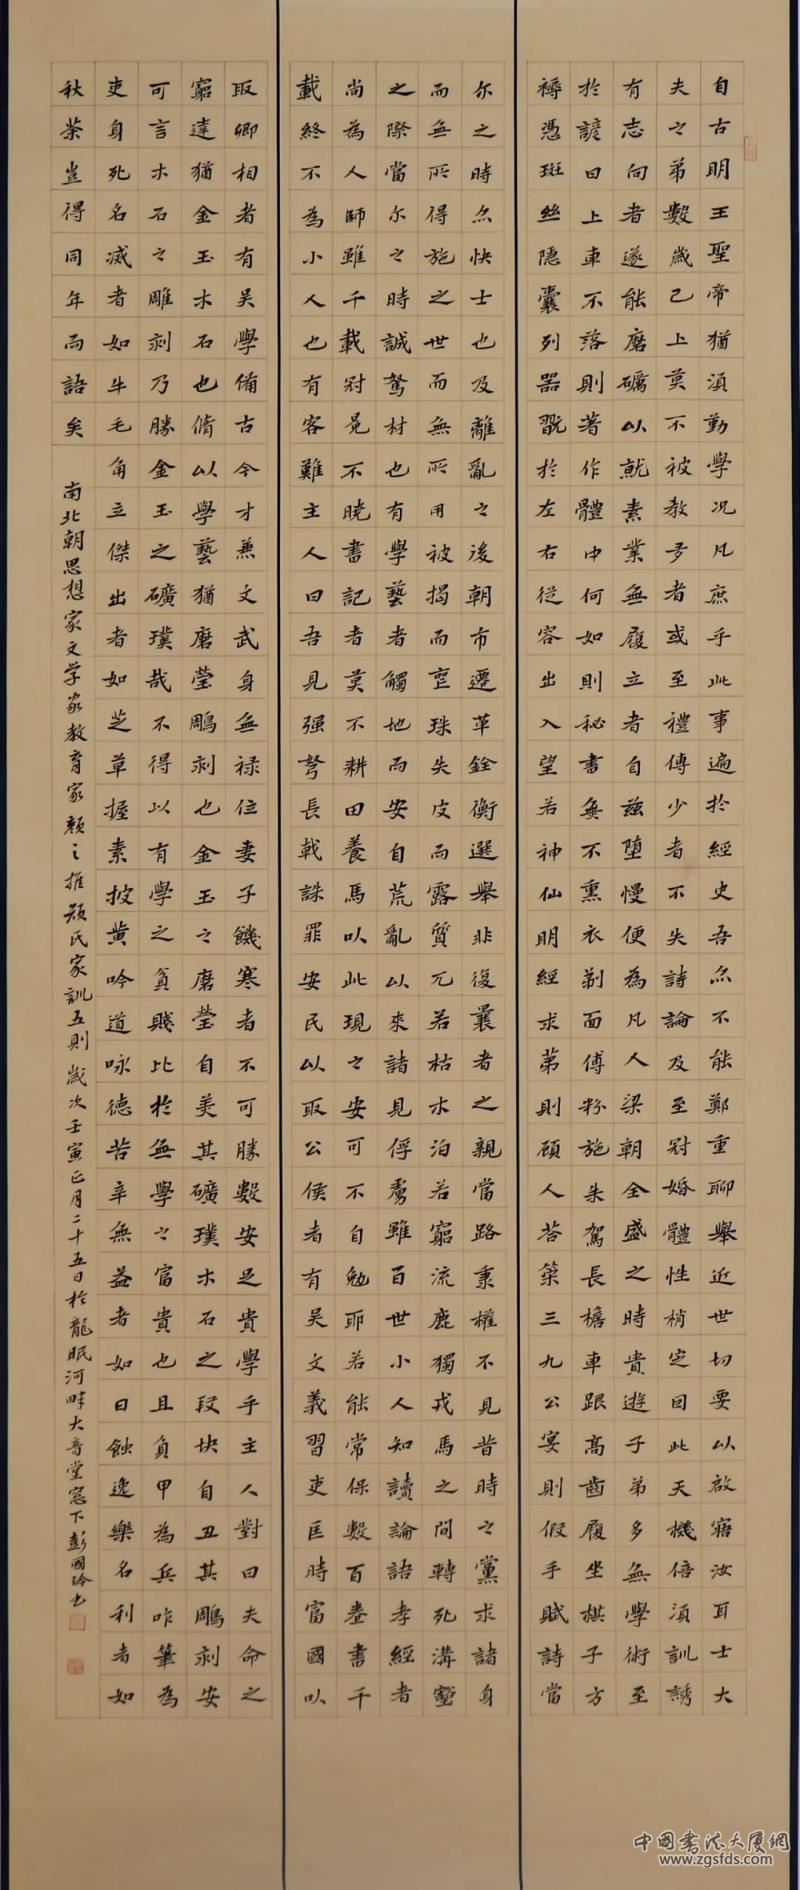 自古明王聖帝猶須勤學況凡庶乎此事遍於經史吾亦不能鄭重聊舉近世切要以啟寤汝耳士大
夫之弟數歲已上莫不被教多者或至禮傳少者不失詩論及至冠婚體性稍定因此天機倍須訓誘
有志向者遂能磨礪以就素業無履立者自茲墮慢便為凡人梁朝全盛之時貴遊子弟多無學術至
於諺曰上車不落則著作體中何如則秘書無不熏衣剃面傅粉施朱駕長檐車跟高齒履坐棋子方
褥憑斑絲隱囊列器翫於左右從容出入望若神仙明經求第則顧人答策三九公宴則假手賦詩當
尔之時亦快士也及離亂之後朝市遷革銓衡選舉非復曩者之親當路秉權不見昔時之黨求諸身
而無所得施之世而無所用被褐而喪珠失皮而露質兀若枯木泊若窮流鹿獨戎馬之間轉死溝壑
之際當尔之時誠駑材也有學藝者觸地而安自荒亂以來諸見俘虜雖百世小人知讀論語孝經者
尚為人師雖千載冠冕不曉書記者莫不耕田養馬以此現之安可不自勉耶若能常保數百卷書千
載終不為小人也有客難主人曰吾見强弩長戟誅罪安民以取公侯者有吳文義習吏匡時富國以
取卿相者有吳學備古今才兼文武身無祿位妻子饑寒者不可勝數安足貴學乎主人對曰夫命之
窮達猶金玉木石也脩以學藝猶磨瑩鵰刻也金玉之磨瑩自美其礦璞木石之段块自丑其鵰刻安
可言木石之雕刻乃勝金玉之礦璞哉不得以有學之貧賤比於無學之富貴也且負甲為兵咋筆為
吏身死名滅者如牛毛角立傑出者如芝草握素披黄吟道咏德苦辛無益者如日蝕逸樂名利者如
秋荼豈得同年而語矣
南北朝思想家文学家教育家顏之推顏氏家訓五則歲次壬寅正月二十五日於龍眠河畔大音堂窓下彭國玲书
中国書法大厦網
www.zgsfds.com